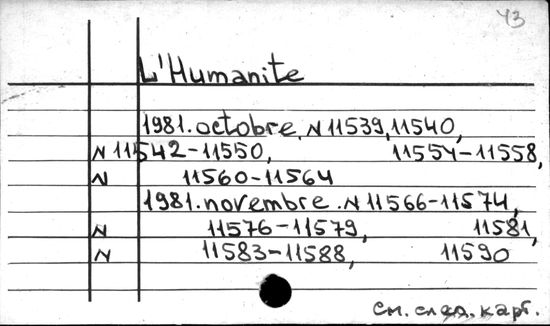 43
L'Humanite
1981. octobre. N 11539, 11540,
N 11542-11550, 11554-11558,
N 11560-11564
1981. novembre. N 11566-11574,
N 11576-11579, 11581,
N 11583-11588, 11590
См. след. карт.